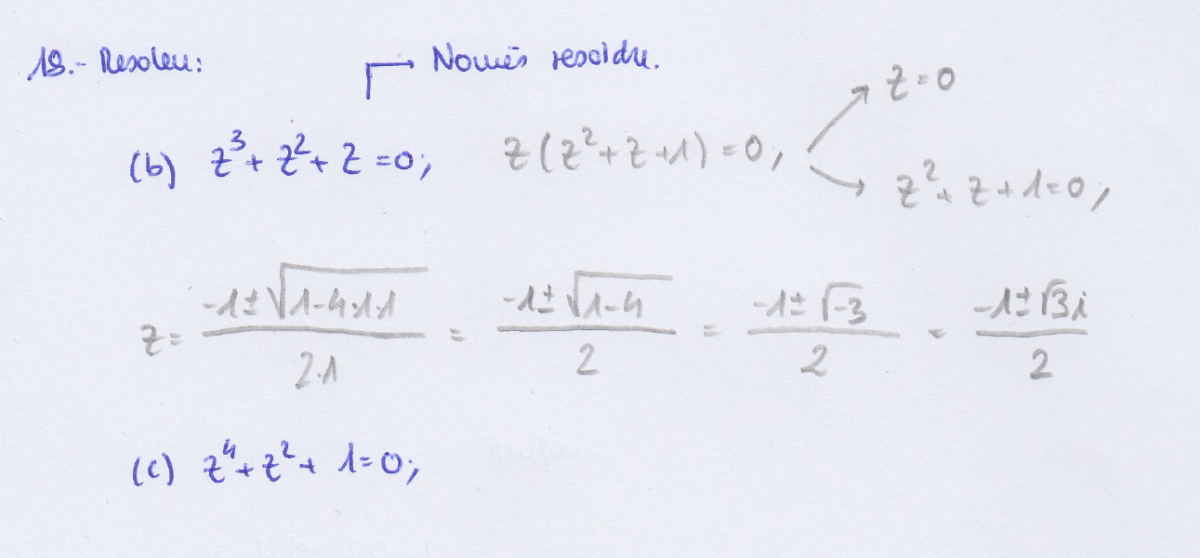 19.- Resoleu:
Només resoldre.
(b) z³ + z² + z = 0; z(z² + z + 1) = 0; z = 0
z² + z + 1 = 0;
z = (-1 ± √(1-4·1·1))/(2·1) = (-1 ± √(1-4))/2 = (-1 ± √-3)/2 = (-1 ± √3 i)/2
(c) z⁴ + z² + 1 = 0;